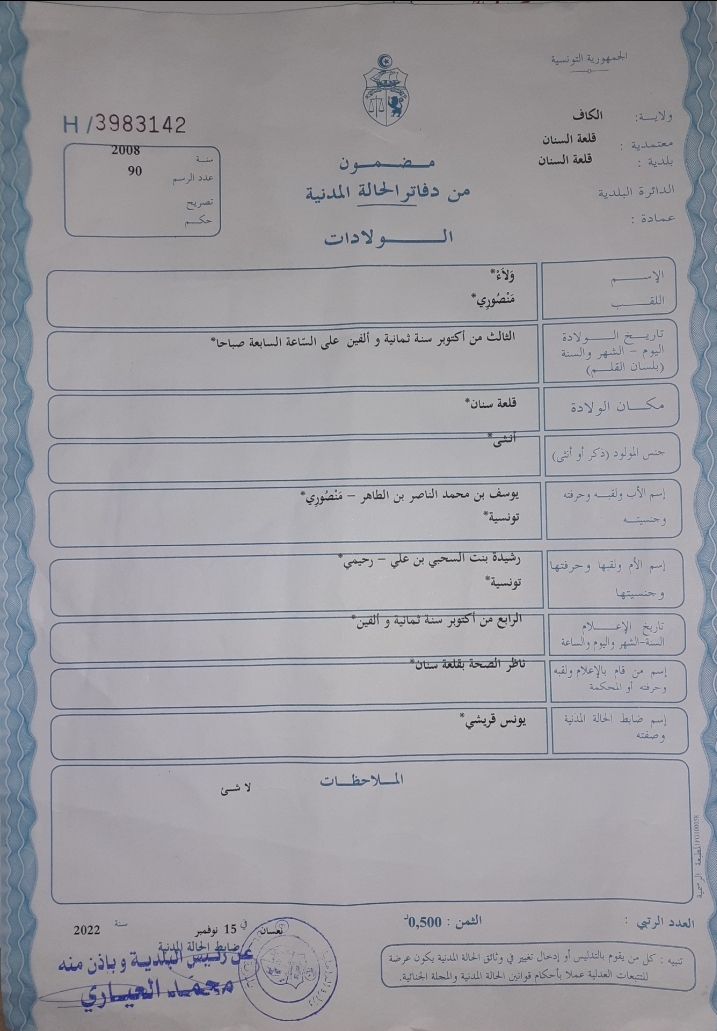 الجمهورية التونسية
ولايـــة: الكاف
معتمدية : قلعة السنان
بلدية : قلعة السنان
الدائرة البلدية
عمادة :
H /3983142
سنة 2008
عدد الرسم 90
تصريح
حكـــم
مـضـمــون
من دفاتر الحالة المدنية
الـــولادات
الإســـم وَلاَءْ*
اللقـــب مَنْصُورِي*
تاريـخ الـــولادة
اليوم - الشهر والسنة
(بلسان القلـــم)
الثالث من أكتوبر سنة ثمانية و ألفين على السّاعة السابعة صباحا*
مكــان الولادة قلعة سنان*
جنس المولود (ذكر أو أنثى) أنثى*
إسم الأب ولقبـــه وحرفته يوسف بن محمد الناصر بن الطاهر – مَنْصُورِي*
وجنسيتـــه تونسية*
إسم الأم ولقبها وحرفتها رشيدة بنت السحبي بن علي – رحيمي*
وجنسيتها تونسية*
تاريخ الإعـــلام الرابع من أكتوبر سنة ثمانية و ألفين*
السنة-الشهر واليوم والساعة
إسم من قام بالإعلام ولقبه ناظر الصحة بقلعة سنان*
وحرفته أو المحكمة
إسم ضابط الحالة المدنية يونس قريشي*
وصفته
الملاحظــات
لا شئ
المطبعة الرسمية
العدد الرتبي :
الثمن : 0,500د
في 15 نوفمبر سنة 2022
ضابط الحالة المدنية
عن رئيس البلدية وباذن منه
محمد العياري
تنبيه : كل من يقوم بالتدليس أو إدخال تغيير في وثائق الحالة المدنية يكون عرضة
للتتبعات العدلية عملا بأحكام قوانين الحالة المدنية والمجلة الجنائية.